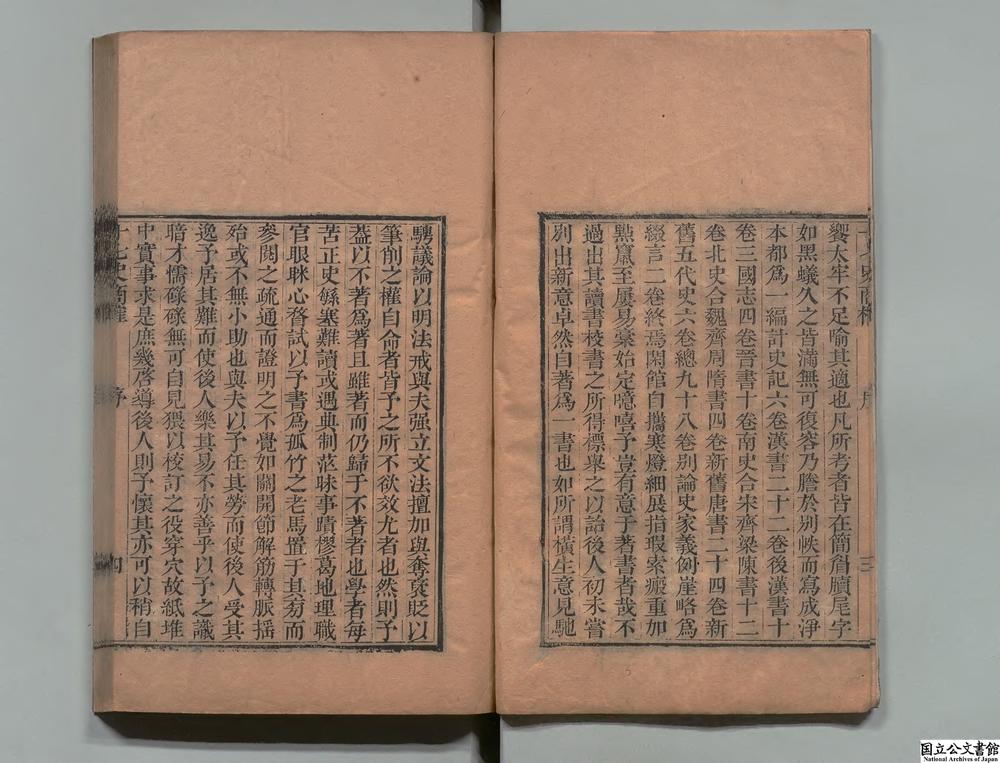 饗太牢不足喻其適也凡所考者皆在簡眉牘尾字
如黑蟻久之皆滿無可復容乃謄於別帙而寫成淨
本都爲一編計史記六卷漢書二十二卷後漢書十
卷三國志四卷晉書十卷南史合宋齊梁陳書十二
卷北史合魏齊周隋書四卷新舊唐書二十四卷新
舊五代史六卷總九十八卷別論史家義例崖略爲
綴言二卷終焉閑館自攜寒燈細展指瑕索瘢重加
點竄至屢易稾始定噫嘻予豈有意于著書者哉不
過出其讀書校書之所得標舉之以詒後人初未嘗
別出新意卓然自著爲一書也如所謂橫生意見馳
騁議論以明法戒與夫强立文法擅加與奪褒貶以
筆削之權自命者皆予之所不欲效尤者也然則予
葢以不著爲著且雖著而仍歸于不著者也學者每
苦正史緐塞難讀或遇典制茫昧事蹟樛葛地理職
官眼眯心瞀試以予書爲孤竹之老馬置于其旁而
參閱之疏通而證明之不覺如關開節解筋轉脈搖
殆或不無小助也與夫以予任其勞而使後人受其
逸予居其難而使後人樂其易不亦善乎以予之識
暗才懦碌碌無可自見猥以校訂之役穿穴故紙堆
中實事求是庶幾啓導後人則予懷其亦可以稍自
十七史商榷
序
三
十七史商榷
序
四
国立公文書館
National Archives of Japan